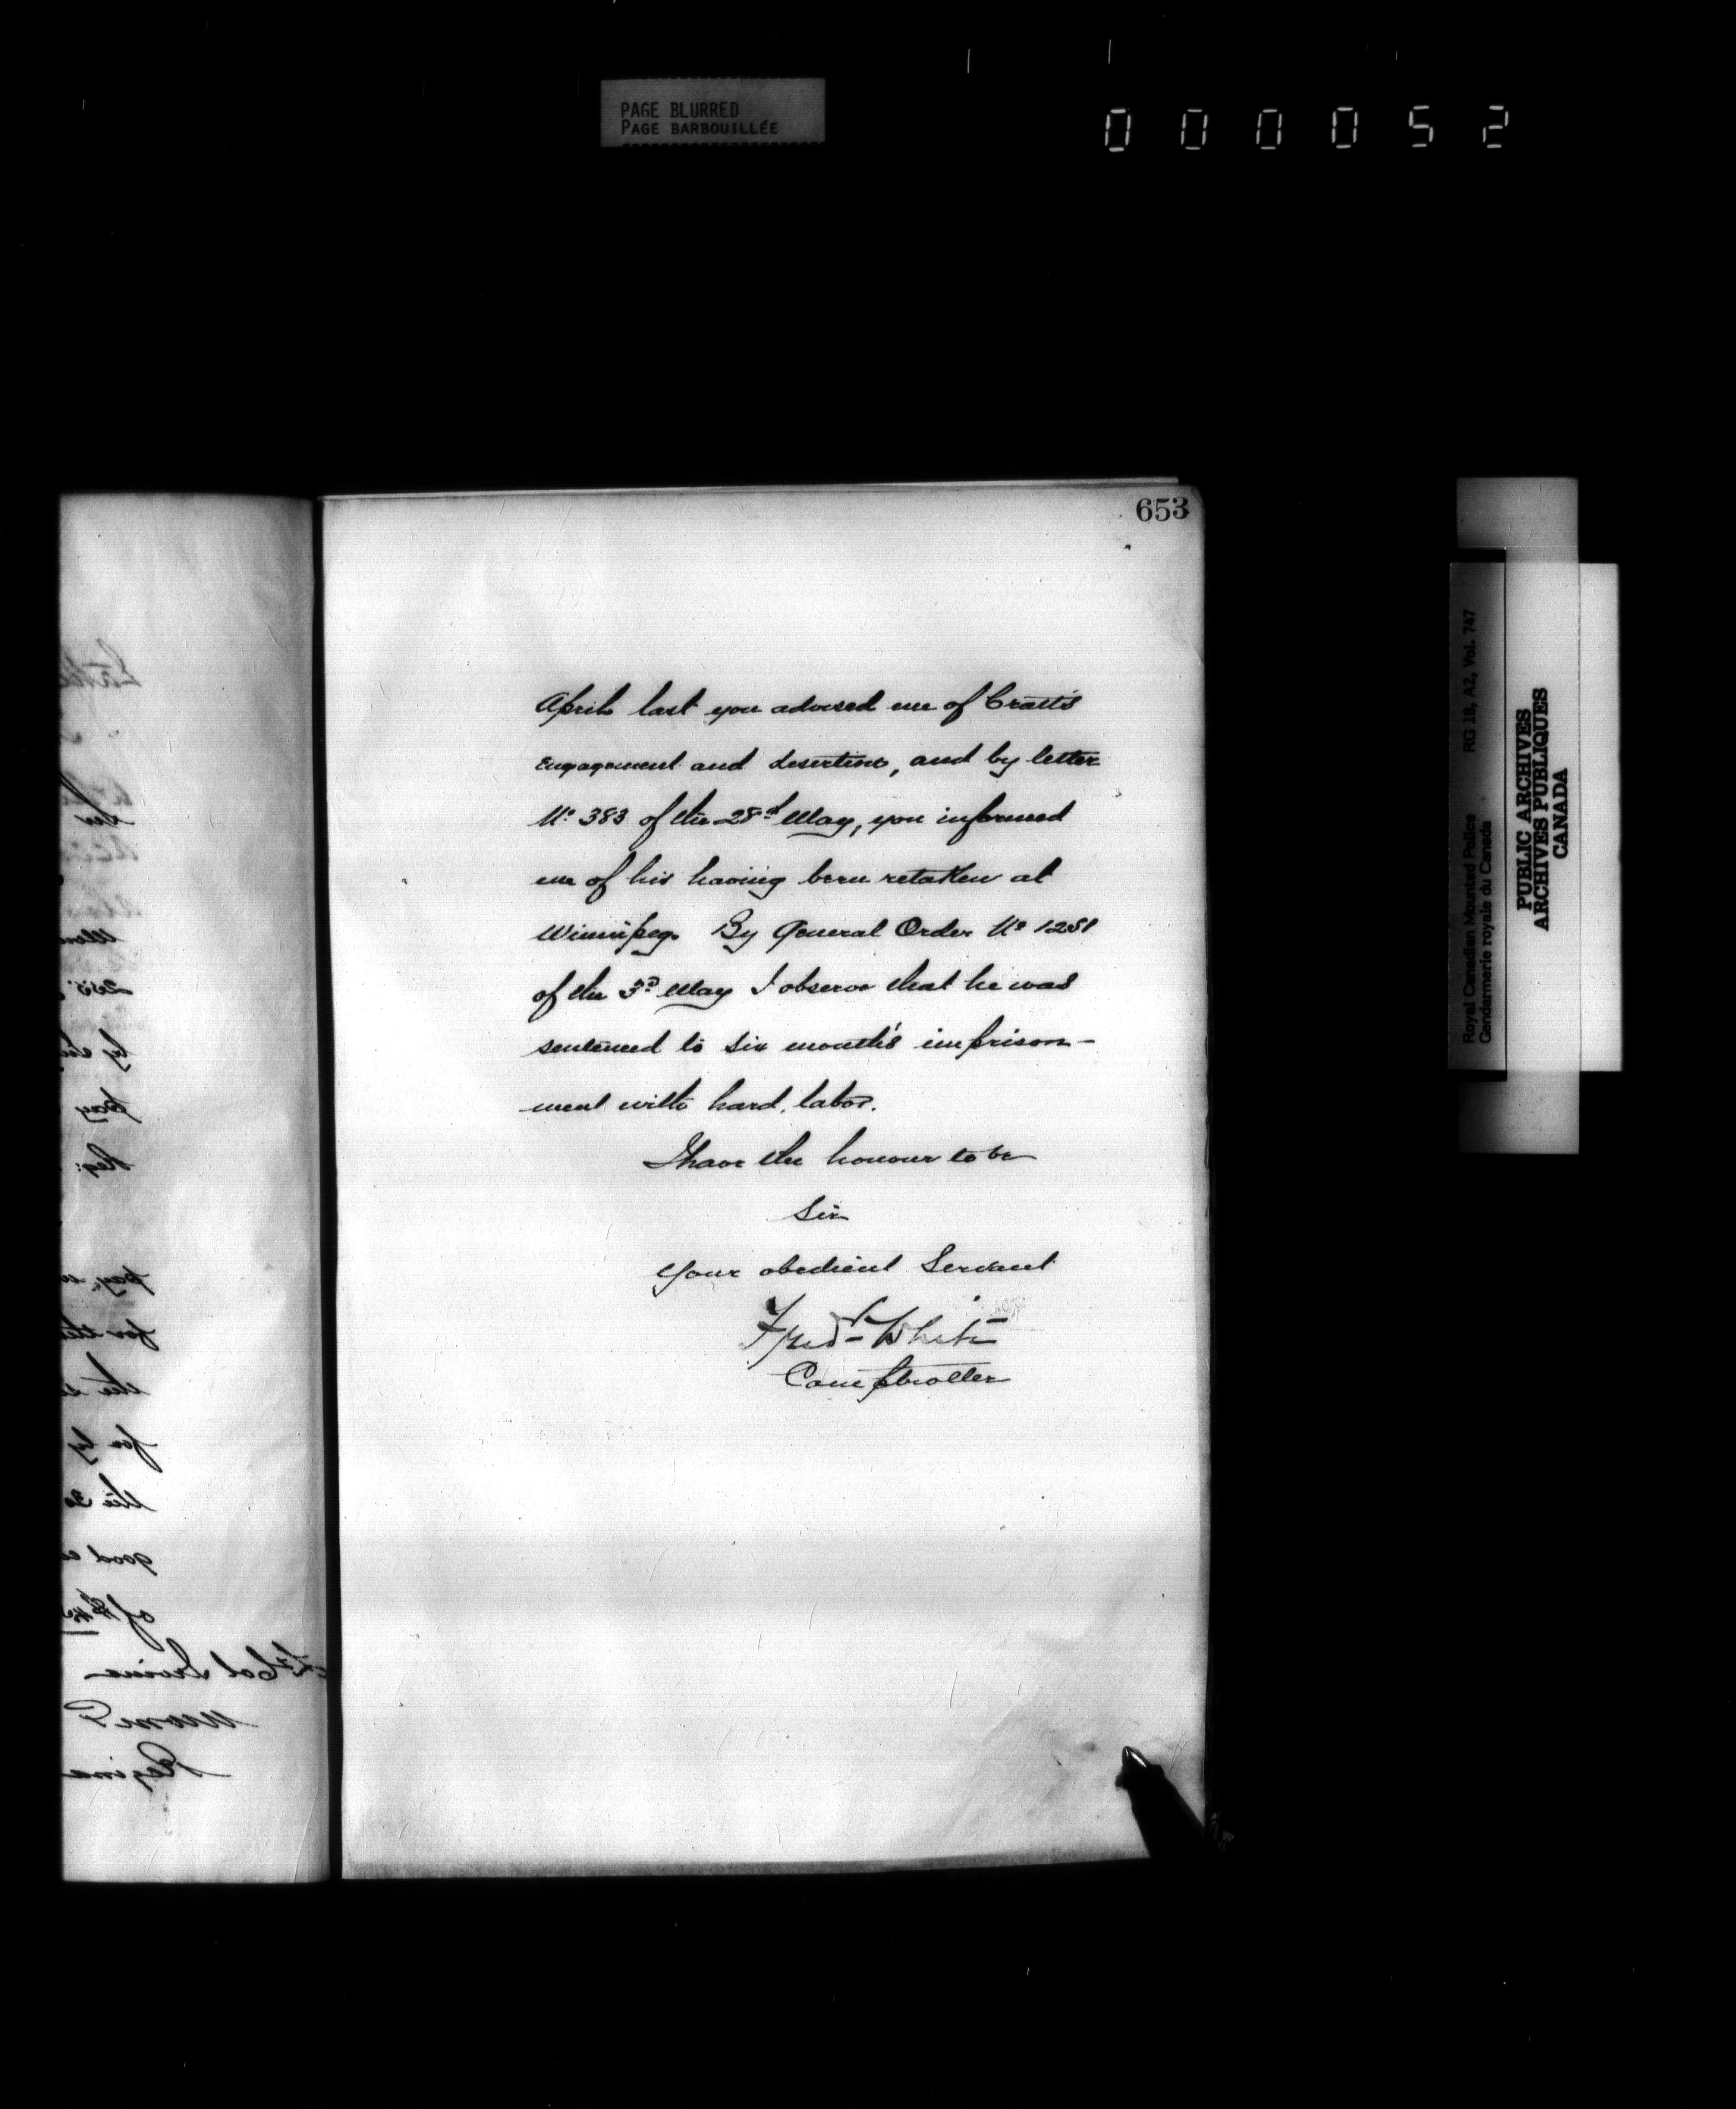 PAGE BLURRED
PAGE BARBOUILLÉE
000052
653
April last you advised me of Cratt's
engagement and desertion, and by letter
No. 383 of the 28th May, you informed
me of his having been retaken at
Winnipeg. By General Order No 1281
of the 3rd May I observe that he was
sentenced to six month's imprison-
ment with hard labor.
I have the honour to be
Sir
Your obedient Servant
Fred White
Comptroller
Lt Col Irvine
Regina
Royal Canadian Mounted Police RG 18, A2, Vol. 747
Gendarmerie royale du Canada
PUBLIC ARCHIVES
ARCHIVES PUBLIQUES
CANADA